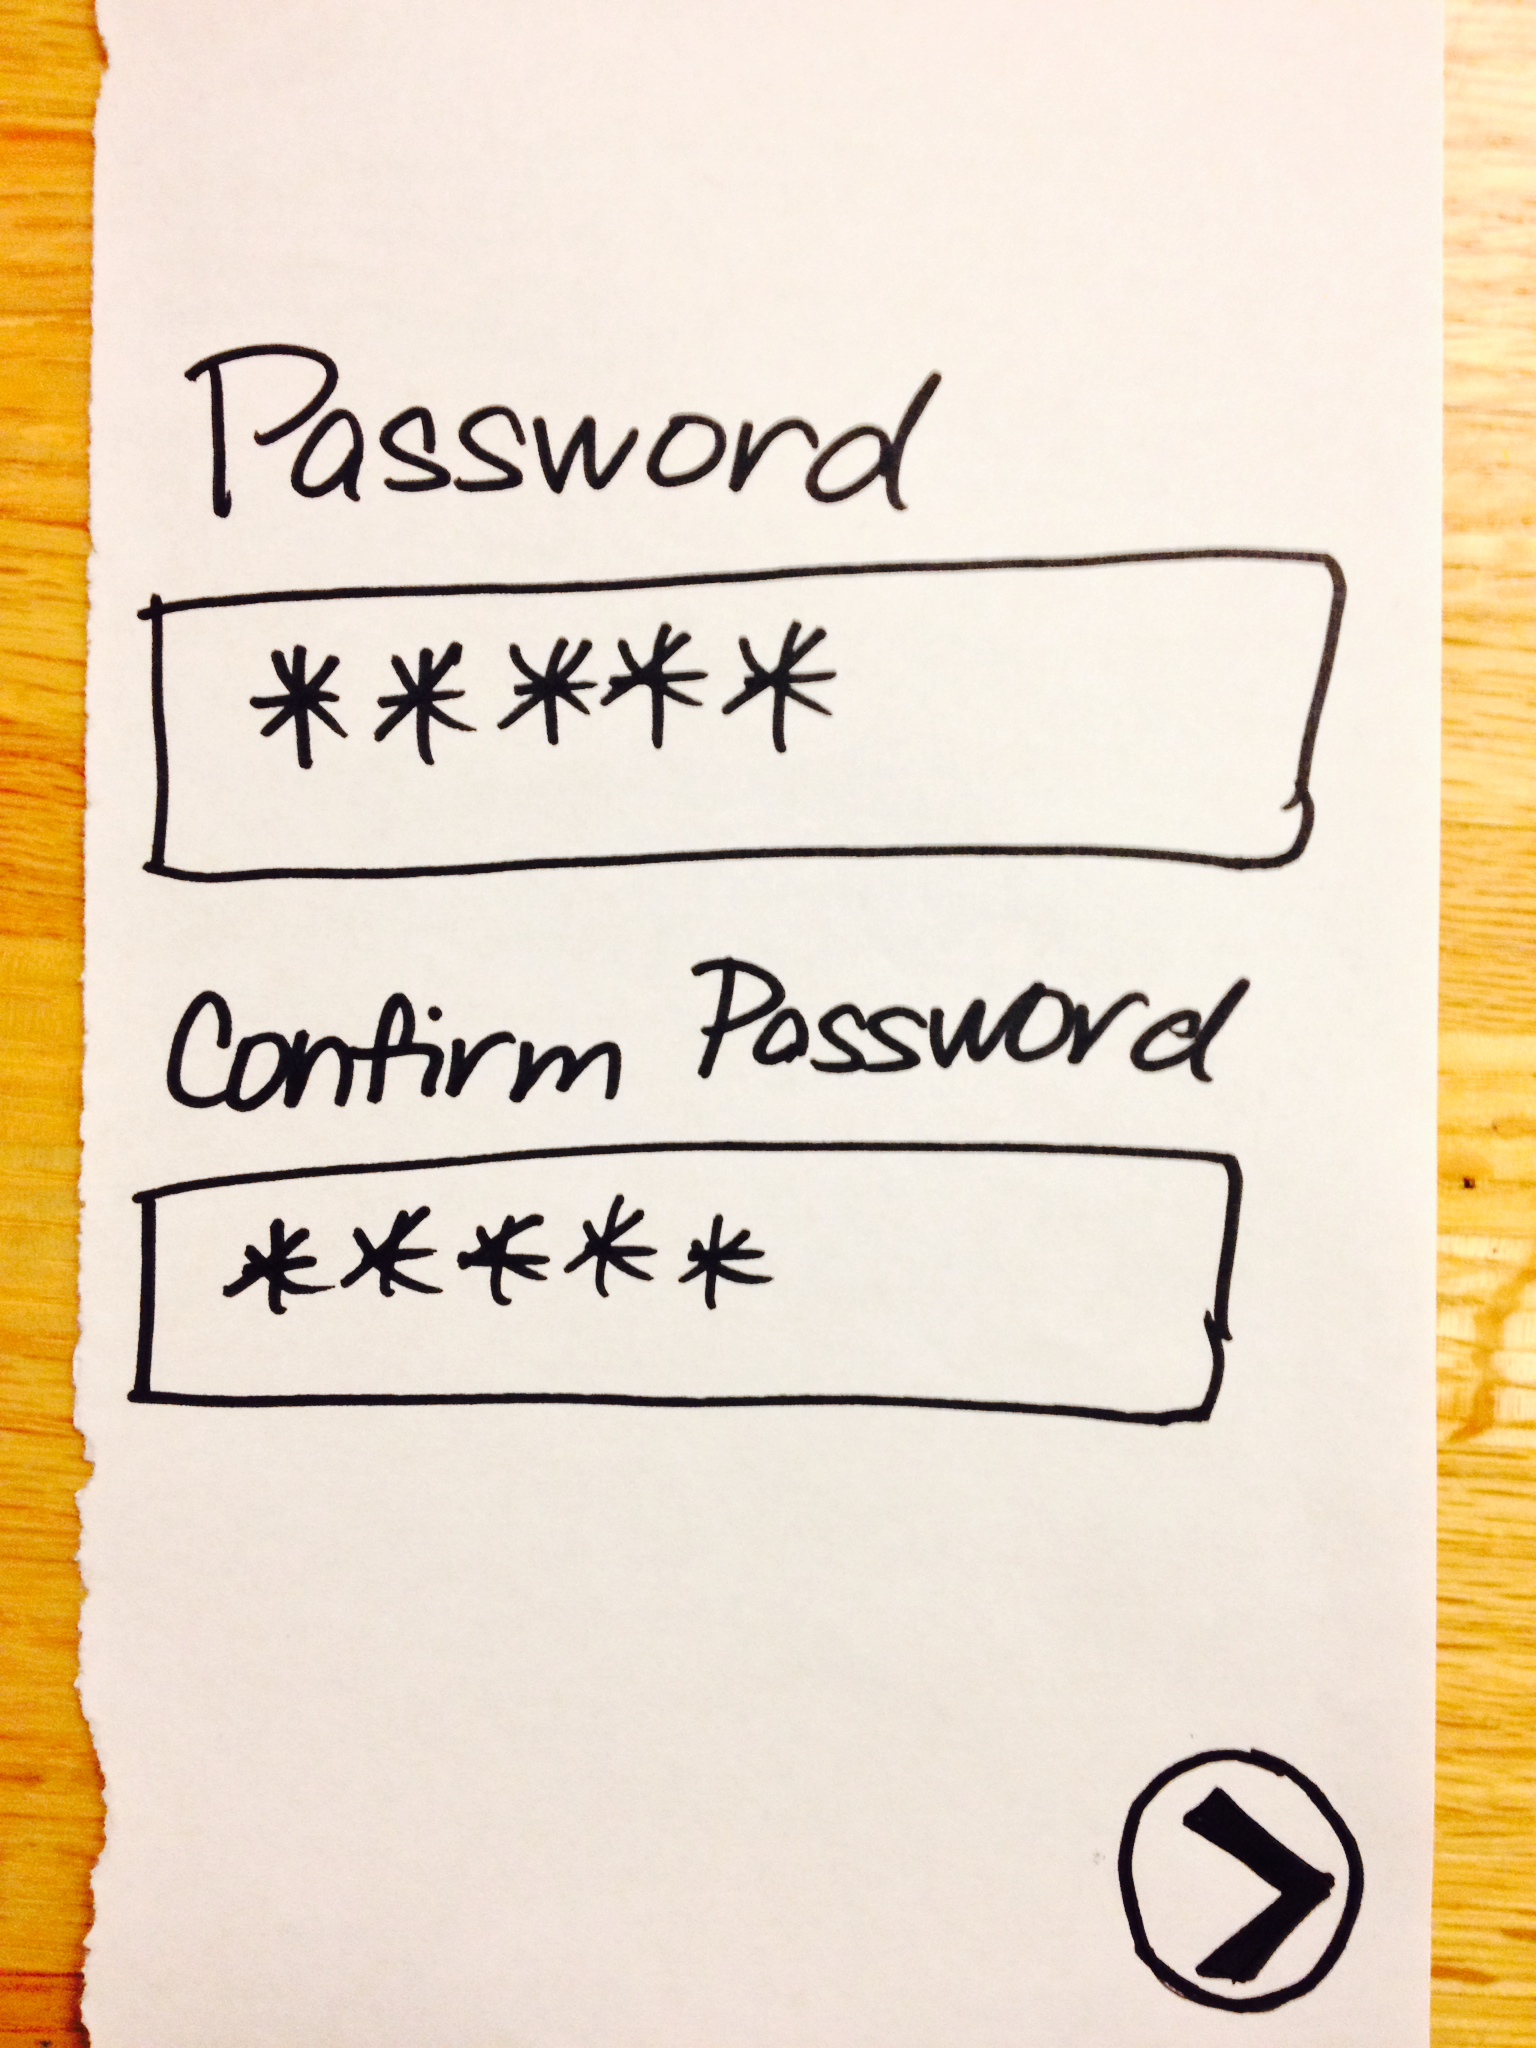 Password
*****
Confirm Password
*****
>